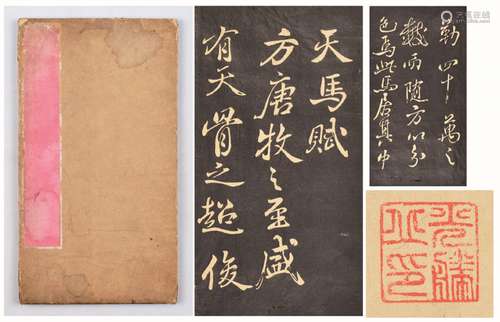 天馬賦
方唐牧之至盛
有天骨之超俊
勒四十萬之
數而隨方以分
色焉此馬居其中